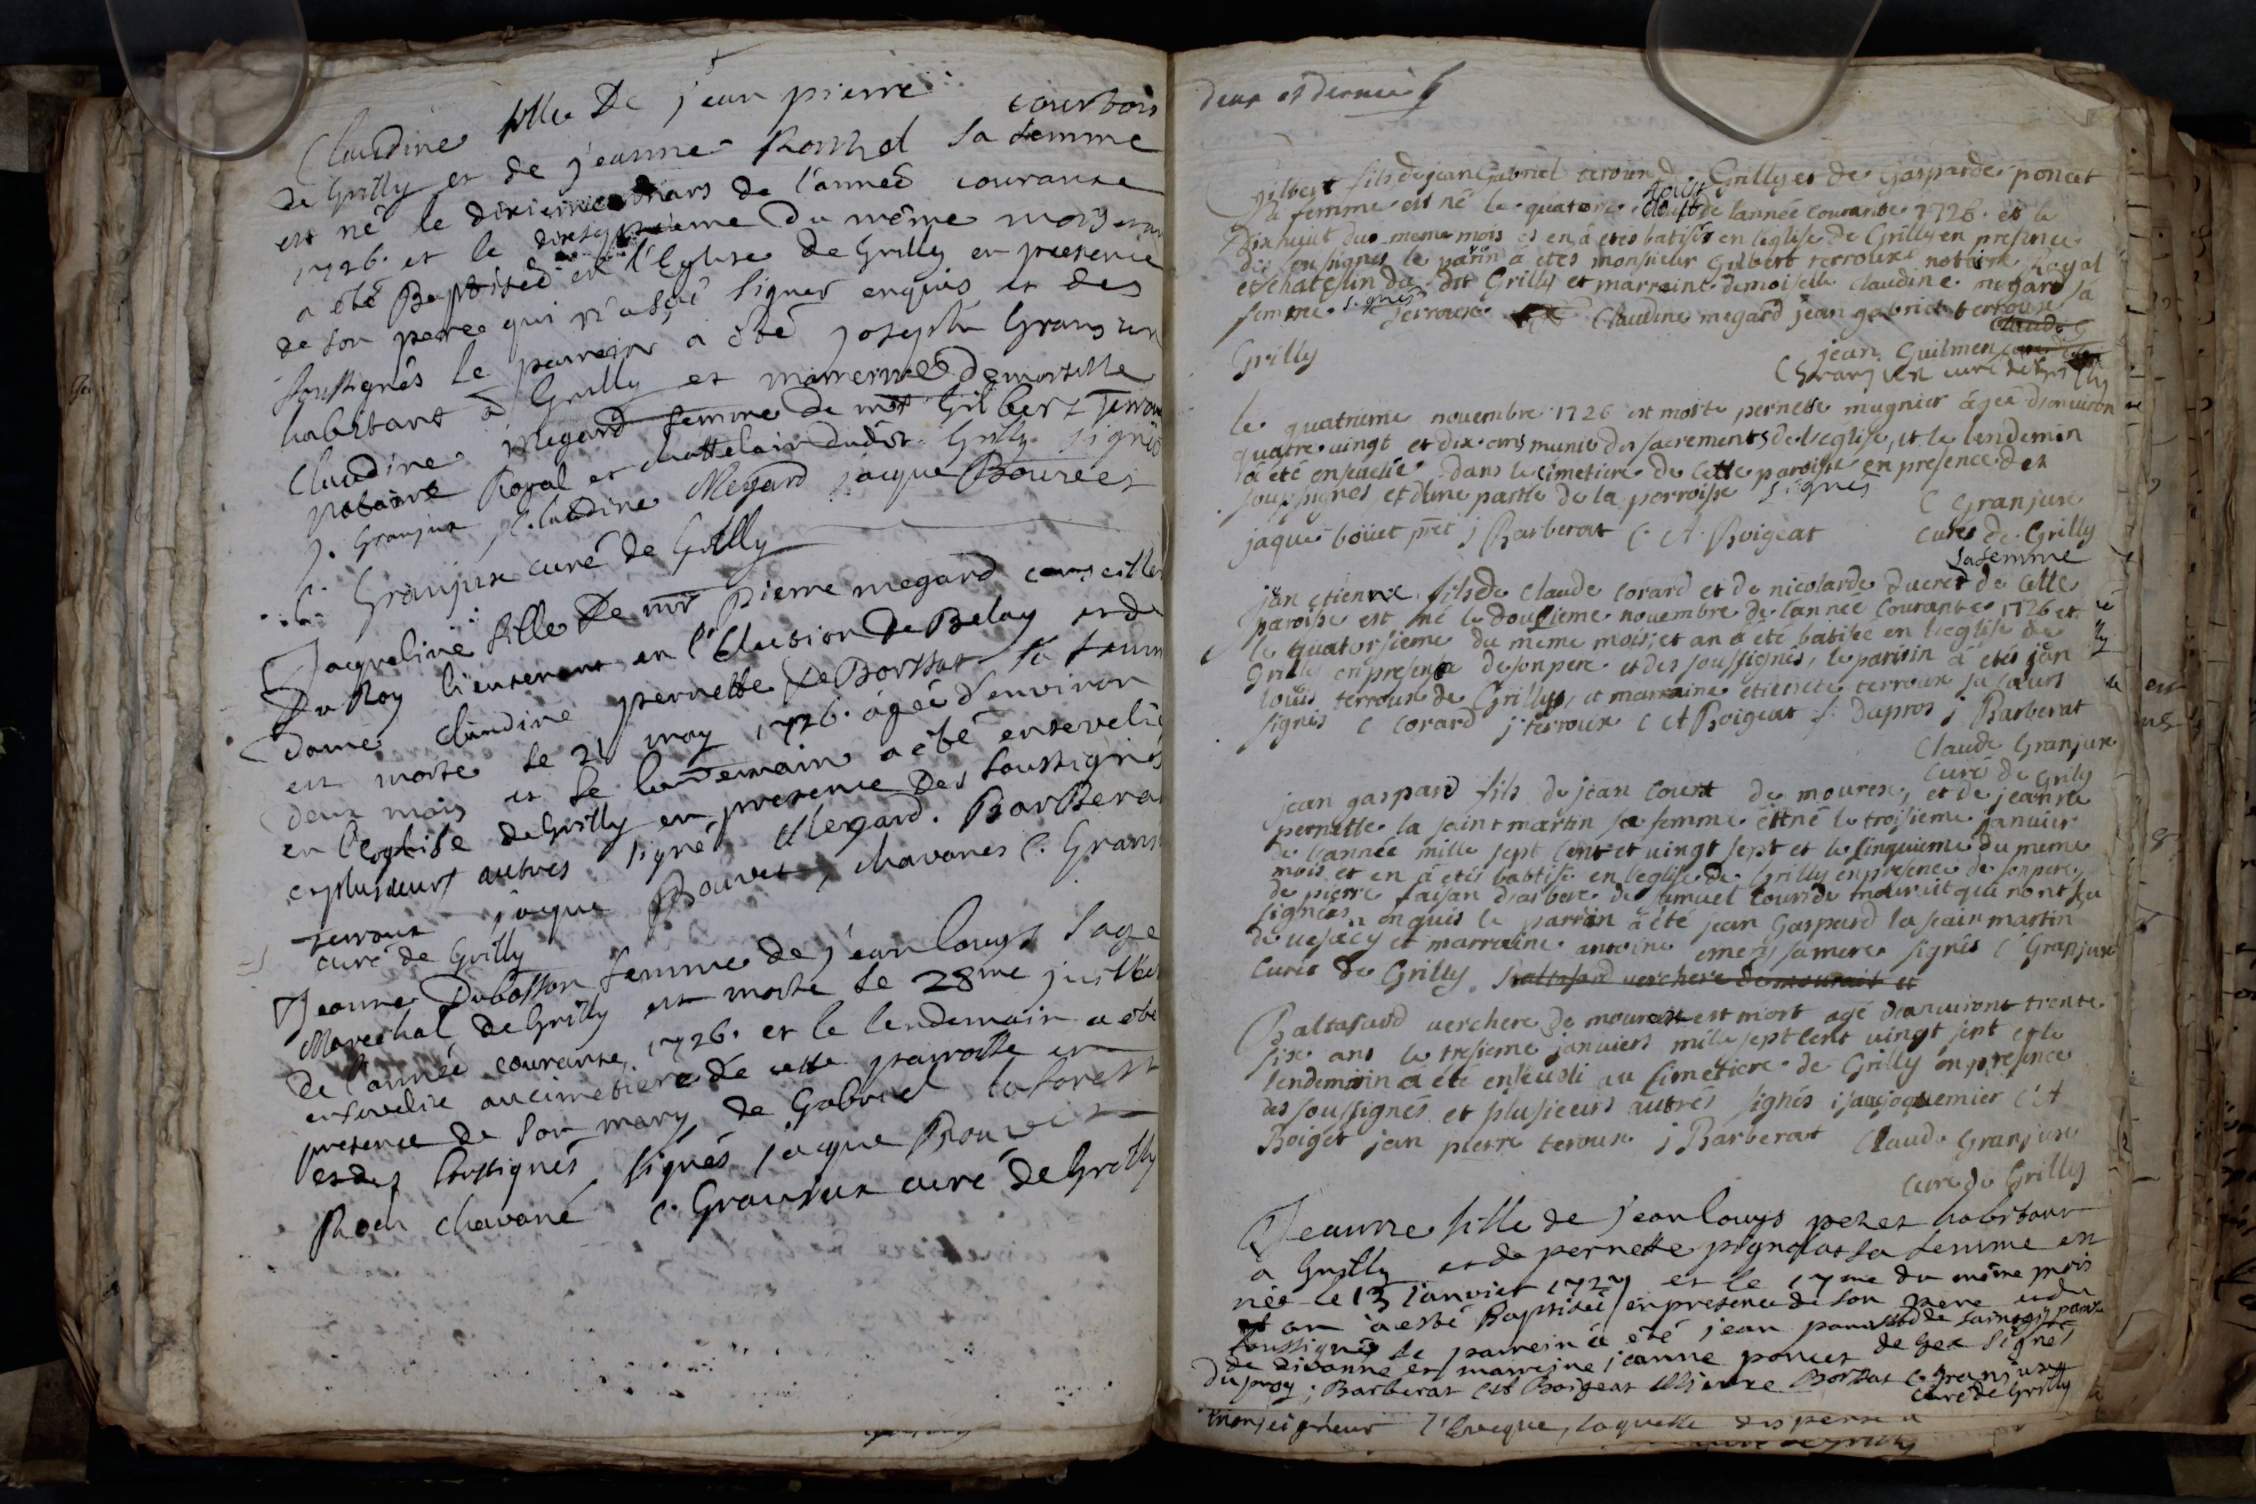 Claudine fille De jean pierre courtois
de Grilly et de jeanne sa femme
est né le dixieme Mars de l'année courante
1726. et le du même mois et an
a été Baptisée en l'Eglise de Grilly en presence
de son pere qui n'a sçu signer enquis et des
soussignés le parrein a été joseph Granjux
habitant à Grilly et marreine Demoiselle
Claudine Megard femme de mr Gilbert Terroux
notaire Royal et chattelain dudit Grilly signés
J. Granjux Claudine Megard jacque Bouvet
C. Granjux curé de Grilly
Jacqueline fille De mr Pierre megard conseiller
Du Roy lieutenant en l'Election De Belay et de
dame claudine pernette De Borssat sa femme
est morte le 21 may 1726. agée d'environ
deux mois et le lendemain a été ensevelie
en l'eglise de Grilly en presence des soussignés
et plusieurs autres signé Megard. Barberat
terroux jaque Bouvet, chavanes C. Granjux
curé de Grilly
Jeanne Dubosson femme de jean louys sage
Marechal de Grilly est morte le 28me juillet
de l'année courante 1726. et le lendemain a été
ensevelie au cimetiere de cette parroisse en
presence de son mary, de Gabriel laforest
et des soussignés signés jacque Bouvet
Roch chavané C. Granjux curé de Grilly
deux et dernier
gilbert fils de jean Gabriel teroux de Grilly et de Gasparde poncet
sa femme est né le quatorze Aoust de lannée courante 1726. et le
Dix huiit du meme mois et en á etés batisés en léglise de Grilly en presence
des sousignés le parin a etés monsieur Gilbert terroux notaire Royal
et chatelin du dit Grilly et marraine demoiselle claudine megard sa
femme signés Terroux Claudine megard jean gabriel terroux
Claude
Grilly jean Guilmen
C Granjux curé de Grilly
le quatrieme novembre 1726 est morte pernette mugnier ágée d'environ
quatre vingt et dix ans munie des sacrements de l'eglise, et le lendemin
à été enseuelie dans le cimetiere de Cette paroisse en presence des
soussignés et d'une partie de la perroisse signés
C Granjux
jaque boüet prêt j Barberat C. A. Boigeat Curés de Grilly
sa femme
jan étienne fils de Claude Corard et de nicolarde ducret de Cette
paroise est né le Dousieme novembre de lanneé Courante 1726 et
le quatorsieme du meme mois, et an a été batisée en l'eglise de
Grilly en presence de son pere et des soussignés, le parisin á étés jân
louis terroux de Grilly, et marraine etienete terroux sa soeurs
signés C Corard j terroux C A Boigeat f. Dupros j Barberat
Claude Granjux
Curé de Grily
jean gaspard fils de jean Court de mourex, et de jeanne
pernette la saint martin sa femme est né le troisieme janvier
de l'année mille sept Cent et vingt sept et le Cinquieme du meme
mois et en á etés babtisé en l'eglise de Grilly en presence de son pere,
de pierre faisan d'arbere de samuel Court de mouret qui nont su
signeés, en quis le parrin á été jean Gaspard la sain martin
de vesacy et marraine antoine emery sa mere signés C Granjux
Curés de Grilly Baltasard verchere de mourait et
Baltasard verchere de mourait est mort agé d'anviront trente
six ans le tresieme janviers mille sept Cent vingt sept et le
lendemain á été enseueli au Cimetiere de Grilly en presence
des soussignés et plusieurs autres signés C A
Boiget jean pierre teroux j Barberat Claude Granjux
Cure de Grilly
Jeanne fille de jean louys perret habitant
à Grilly et de pernette sa femme est
née le 13 janvier 1727 et le 17me du même mois
et an a esté Baptisée en presence de son pere et des
soussignés le parrein a été jean
de divonne et marreine jeanne poncet de Gex signés
Duproz j Barberat C A Boigeat Borssat C. Granjux
curé de Grilly
monseigneur l'Eveque, laquelle dispense
curé de Grilly